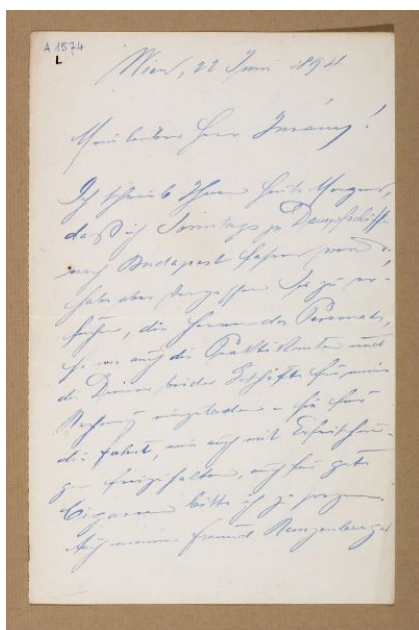 A 1574
L
Wien, 22 Juni 1894
Mein lieber Herr
Ich schrieb Ihnen heute Morgens,
daß ich Sonntags pr Dampfschiff
nach Budapest fahren werde,
habe aber vergessen Sie zu er-
suchen, die Herren des Personals,
so wie auch die Praktikanten und
die Diener beider Geschäfte für meine
Rechnung einzuladen u sie für
die Fahrt, wie auch mit Erfrischun-
gen freizuhalten, auch für gute
Cigarren bitte ich zu sorgen.
Auch meinen Freund